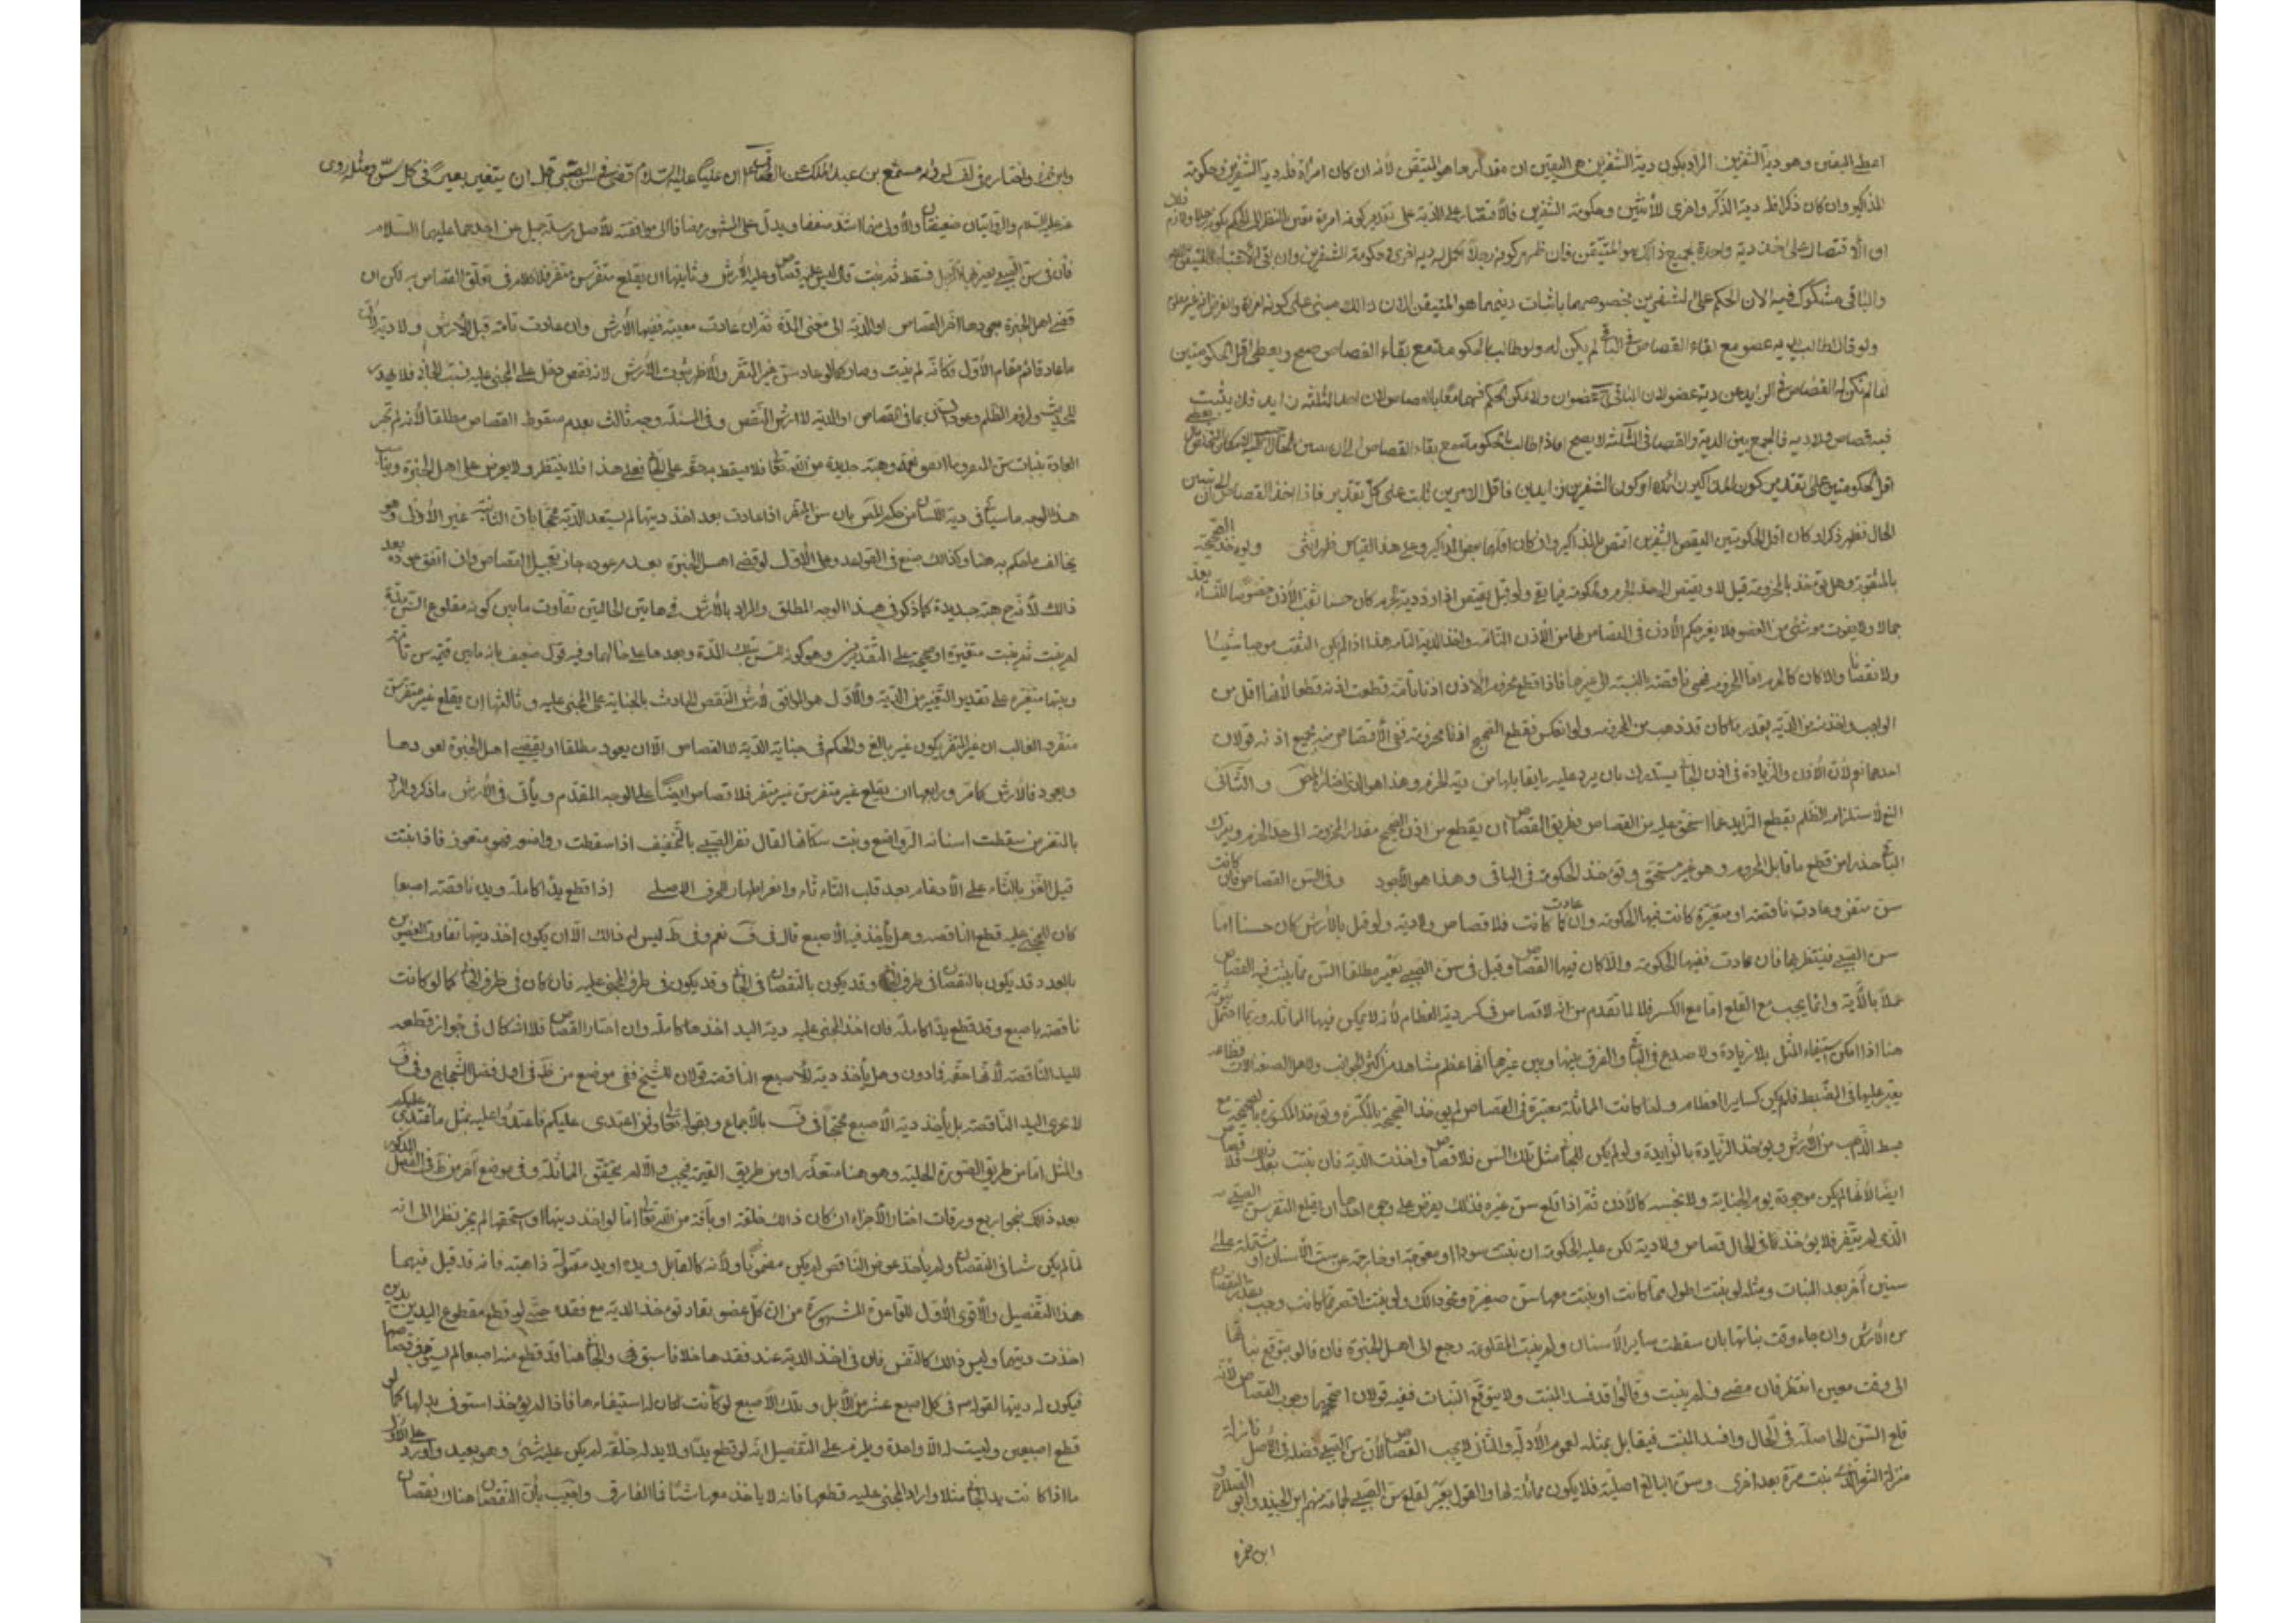 اعطى اليقين وهو دية الشفرين المراد بكون دية الشفرين هي اليقين ان مقدارها هو المتيقن لأنه ان كان امرأة فله دية الشفرين وحكومة
المذاكير وان كان ذكرا فله دية الذكر واخرى للأنثيين وحكومة الشفرين فالاقتصار على الدية على تقدير كونه امرأة
او الاقتصار على اخذ دية واحدة لجميع ذلك هو المتيقن فان ظهر كونه رجلا اكمل له دية اخرى وحكومة الشفرين وان بقي
والباقي مشكوك فيه لان الحكم على الشفرين بخصوصهما باثبات ديتهما هو المتيقن لان ذلك مبني على كونه امرأة والفرض انه غير معلوم
ولو قال اطالب بدية عضو مع بقاء القصاص في الباقي لم يكن له ولو طالب بالحكومة مع بقاء القصاص صح ويعطى اقل الحكومتين
انما لم يكن له القصاص في الزايد عن دية عضو لان الباقي عضوان ولا يمكن الحكم فيهما معا بالقصاص لان احد الثلثة زايد فلا يثبت
فيه قصاص ولا دية فالجمع بين الدية والقصاص في الثلثة لا يصح اما اذا طالب بالحكومة مع بقاء القصاص الى ان يتبين الحال
اقل الحكومتين على تقدير كون المذاكير زائدة او كون الشفرين زايدين فاقل الامرين ثابت على كل تقدير فاذا اخذ القصاص الى ان يتبين
الحال فظهر ذكرا وكان اقل الحكومتين لنقص الشفرين اقتص بالمذاكير وان كان اقلهما بعض المذاكير وعلى هذا القياس ظهر انثى ويؤخذ الصحيحة
بالمثقوبة وهل يؤخذ بالمخرومة قيل لا ويقتص الى حد الخرم والحكومة فيما بقي ولو قيل يقتص اذا رد دية الخرم كان حسنا ثقب الأذن خصوصا للنساء يعد
جمالا ولا يفوت به شئ من العضو فلا يغير حكم الأذن في القصاص لها من الأذن التامة واخذ الدية التامة هذا اذا لم يكن الثقب موجبا شينا
ولا نقصانا والا كان كالخرم اما المخرومة فهي ناقصة بالنسبة الى غيرها فاذا قطع مخروم الاذن اذنا تامة قطعت اذنه قطعا لأنها اقل من
الواجب واخذ من الدية بقدر ما كان قد ذهب من المخرومة ولو انعكس فقطع الصحيح اذنا مخرومة ففي الاقتصاص منه بجميع اذنه قولان
احدهما نعم لان الاذن والزيادة في اذن الجاني يستدرك بان يرد عليه ما يقابلها من دية الخرم وهذا هو الذي اختاره المص والثاني
المنع لاستلزامه الظلم بقطع الزايد عما استحق عليه من القصاص فطريق القصاص ان يقطع من اذن الصحيح مقدار المخرومة الى حد الخرم ويترك
الباقي حذرا من قطع ما قابل المخروم وهو غير مستحق ويؤخذ الحكومة في الباقي وهذا هو الأجود وفي السن القصاص فان كانت
سن مثغر وعادت ناقصة او متغيرة كانت فيها الحكومة وان عادت كما كانت فلا قصاص ولا دية ولو قيل بالارش كان حسنا اما
سن الصبي فينتظر بها فان عادت ففيها الحكومة والا كان فيها القصاص وقيل في سن الصبي بعير مطلقا السن مما يثبت فيه القصاص
عملا بالآية وانما يجب مع القلع اما مع الكسر فلا لما تقدم من انه لا قصاص في كسر دية العظام لأنه لا يمكن فيها المماثلة وربما احتمل ثبوته
هنا اذا امكن استيفاء المثل بلا زيادة ولا صدع في الباقي والفرق بينها وبين غيرها انها عظم مشاهد من اكثر الجوانب ولاهل الصنعة الآت
يعتمد عليها في الضبط فلم يكن كساير العظام ولما كانت المماثلة معتبرة في القصاص لم يؤخذ الصحيحة بالمكسرة ويؤخذ المكسورة بالصحيحة مع
قسط الذاهب من الارش ويؤخذ الزيادة بالزايدة ولو لم يكن للجاني مثل تلك السن فلا قصاص واخذت الدية فان نبتت بعد ذلك فلا قصاص
ايضا لأنها لم يكن موجودة يوم الجناية ولا تحبسه كالأذن ثم اذا قلع سن غيره فذلك يفرض على وجوه احدها ان يقلع المثغر سن الصبي
الذي لم يتغر فلا يؤخذ في الحال قصاص ولا دية لكن عليه الحكومة ان نبتت سودا او معوجة او خارجة عن سمت الأسنان او مشتملة على
سنين آخر بعد النبات ومثله لو نبتت اطول مما كانت او نبتت معها سن صغيرة ونحو ذلك ولو نبتت اقصر مما كانت وجب بقدر النقصان
من الارش وان جاء وقت نباتها بان سقطت ساير الأسنان ولم ينبت المقلوعة رجع الى اهل الخبرة فان قالوا يتوقع نباتها
الى وقت معين انتظر فان مضى فلم ينبت وقالوا قد فسد المنبت ولا يتوقع النبات ففيه قولان اصحهما وجوب القصاص لأنه
قلع السن الحاصلة في الحال وافسد المنبت فيقابل بمثله لعموم الأدلة والثاني لا يجب القصاص لأن سن الصبي فضلة في الأصل نازلة
منزلة الشعر الذي ينبت مرة بعد اخرى وسن البالغ اصلية فلا يكون مماثلة لها والقول ببعير لقلع سن الصبي لجماعة منهم ابن الجنيد وابو الصلاح و
ابن حمزة
وابن حمزة واختاره في لف لرواية مسمع بن عبد الملك عن الصادق ان عليا عليه السلام قضى في سن الصبي قبل ان يتغير بعير في كل سن ومثله روى
عنه عليه السلام والروايتان ضعيفتان والأولى منهما اشد ضعفا ويدل على المشهور مضافا الى موافقته للأصل مرسلة جميل عن احدهما عليهما السلام
قال في سن الصبي يضربها الرجل فسقط ثم نبت قال ليس عليه قصاص وعليه الارش وثانيها ان يقلع مثغر سن مثغر فلا كلام في تعلق القصاص به لكن ان
قضى اهل الخبرة بعودها اخر القصاص او الدية الى مضي المدة ثم ان عادت معيبة ففيها الأرش وان عادت تامة قيل لا ارش ولا دية لان
ما عاد قائم مقام الأول فكأنه لم ينبت وصار كما لو عاد سن غير المثغر والأظهر ثبوت الارش لانه نقص دخل على المجني عليه بسبب الجاني فلا يهدر
للحديث ولزوم الظلم وعود السن ينافي القصاص او الدية لا ارش النقص وفي المسئلة وجه ثالث بعدم سقوط القصاص مطلقا لأنه لم تجر
العادة بنبات سن المثغر وما اتفق نعمة وهبة جديدة من الله تعالى فلا يسقط به حقه على الجاني فعلى هذا فلا ينتظر ولا يعرض على اهل الخبرة ويناسب
هذا الوجه ما سيأتي في دية اللسان من حكم المص بان سن المثغر اذا عادت بعد اخذ ديتها لم يستعد الدية محتجا بان الثانية غير الأولى وهو
يخالف ما حكم به هنا وكذلك صنع في القواعد وعلى الأول لو قضى اهل الخبرة بعدم عوده جاز تعجيل القصاص وان اتفق عوده بعد
ذلك لأنه ح هبة جديدة كما ذكر في هذا الوجه المطلق والمراد بالأرش في هاتين الحالتين تفاوت ما بين كونه مقلوع السن مدة
لم ينبت ثم نبتت متغيرة او صحيحة على التقديرين وهو كونه بسن تلك المدة وبعدها على حالها وفيه قول ضعيف بانه ما بين قيمة سن تامة
وبينها متغيرة على تقدير التغير من الدية والأول هو الوافي لأرش النقص الحادث بالجناية على المجني عليه وثالثها ان يقلع غير مثغر سن
مثغر والغالب ان غير المثغر يكون غير بالغ والحكم في جنايته الدية لا القصاص الا ان يعود مطلقا او يقضي اهل الخبرة بعودها
ويعود فالارش كما مر ورابعها ان يقلع غير مثغر سن غير مثغر فلا قصاص ايضا على الوجه المقدم ويأتي في الأرش ما ذكر والمراد
بالمثغر من سقطت اسنانه الرواضع ونبت مكانها يقال ثغر الصبي بالتخفيف اذا سقطت رواضعه فهو مثغور فاذا نبتت
قيل اتغر بالتاء على الأدغام بعد قلب الثاء تاء واثغر اظهار الحرف الاصلي اذا قطع يدا كاملة ويده ناقصة اصبعا
كان للمجني عليه قطع الناقصة وهل يأخذ دية الأصبع قال في ف نعم وفي ط ليس له ذلك الا ان يكون اخذ ديتها تفاوت العضوين
بالعدد قد يكون بالنقصان في طرف الجاني وقد يكون في طرف المجني عليه فان كان في طرف الجاني كما لو كانت
ناقصة باصبع وقد قطع يدا كاملة فان اخذ المجني عليه دية اليد اخذها كاملة وان اختار القصاص فلا اشكال في جواز قطعه
لليد الناقصة لأنها حقه فما دون وهل يأخذ دية الأصبع الناقصة قولان للشيخ ففي موضع من ط في اول فصل الشجاج وفي ف
لا يجزي اليد الناقصة بل يأخذ دية الأصبع محتجا في ف بالأجماع وبقوله تعالى فمن اعتدى عليكم فاعتدوا عليه بمثل ما اعتدى عليكم
والمثل اما من طريق الصورة الخلقية وهو هنا متعذر او من طريق القيمة فيجب والا لم يتحقق المماثلة وفي موضع آخر من ط في الفصل المذكور
بعد ذلك بنحو اربع ورقات اختار الأجزاء ان كان ذلك خلقة او بآفة من الله تعالى اما لو اخذ ديتها او استحقها لم يجز نظرا الى انه
لما لم يكن سببا في النقصان ولم يأخذ عوض الناقص لم يكن مضمونا ولأنه كالقاتل ويده او يد مقتوله ذاهبة فانه قد قيل فيهما
هذا التفصيل والأقوى الأول للقاعدة المشهورة من ان كل عضو يقاد تؤخذ الدية مع فقده حتى لو قطع مقطوع اليدين يدين
اخذت ديتهما وليس ذلك كالنفس فان في اخذ الدية عند فقدها خلافا سبق في والجاني هنا قد قطع منه اصبعا لم يستوف قصاصها
فيكون له ديتها لقوله ص في كل اصبع عشر من الابل وتلك الأصبع لو كانت لكان له استيفاءها فاذا لم يؤخذ استوفى بدلها كما لو
قطع اصبعين وليست له الا واحدة ويلزم على التفصيل انه لو قطع يدا ولا يد له خلقة لم يكن عليه شئ وهو بعيد واورد على الاول
ما اذا كانت يد الجاني مثلا واراد المجني عليه قطعها فانه لا ياخذ معها شئا فما الفارق واجيب بأن النقصان هناك نقصان